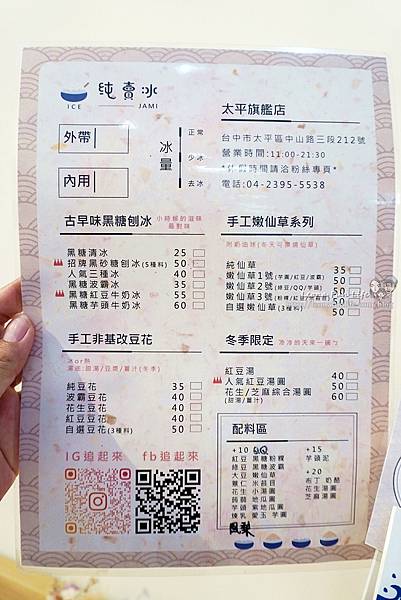 純賣冰
ICE JAMI
太平旗艦店
台中市太平區中山路三段212號
營業時間:11:00-21:30
*休假時間請洽粉絲專頁*
電話:04-2395-5538
外帶
內用
冰量
正常
少冰
去冰
古早味黑糖刨冰 小時候的滋味 最對味
黑糖清冰 25
招牌黑砂糖刨冰(5種料) 50
人氣三種冰 40
黑糖波霸冰 35
黑糖紅豆牛奶冰 55
黑糖芋頭牛奶冰 60
手工嫩仙草系列
附奶油球(冬天可換燒仙草)
純仙草 35
嫩仙草1號(芋圓/紅豆/波霸) 50
嫩仙草2號(綠豆/QQ/芋頭) 50
嫩仙草3號 50
自選嫩仙草(3種料) 50
手工非基改豆花
冰or熱
湯底:甜湯/豆漿/薑汁(冬季)
純豆花 35
波霸豆花 40
花生豆花 40
紅豆豆花 40
自選豆花(3種料) 50
冬季限定 冷冷的天來一碗ㄅ
紅豆湯 40
人氣紅豆湯圓 50
花生/芝麻綜合湯圓 60
(甜湯/薑汁)
IG追起來 fb追起來
配料區
+10 QQ
紅豆 黑糖粉粿
綠豆 黑糖波霸
大豆 嫩仙草
薏仁 米苔目
花生 小湯圓
蒟蒻 地瓜圓
芋頭 紫地瓜圓
煉乳 愛玉 芋圓
鳳梨
+15
芋頭泥
+20
布丁 奶酪
花生湯圓
芝麻湯圓